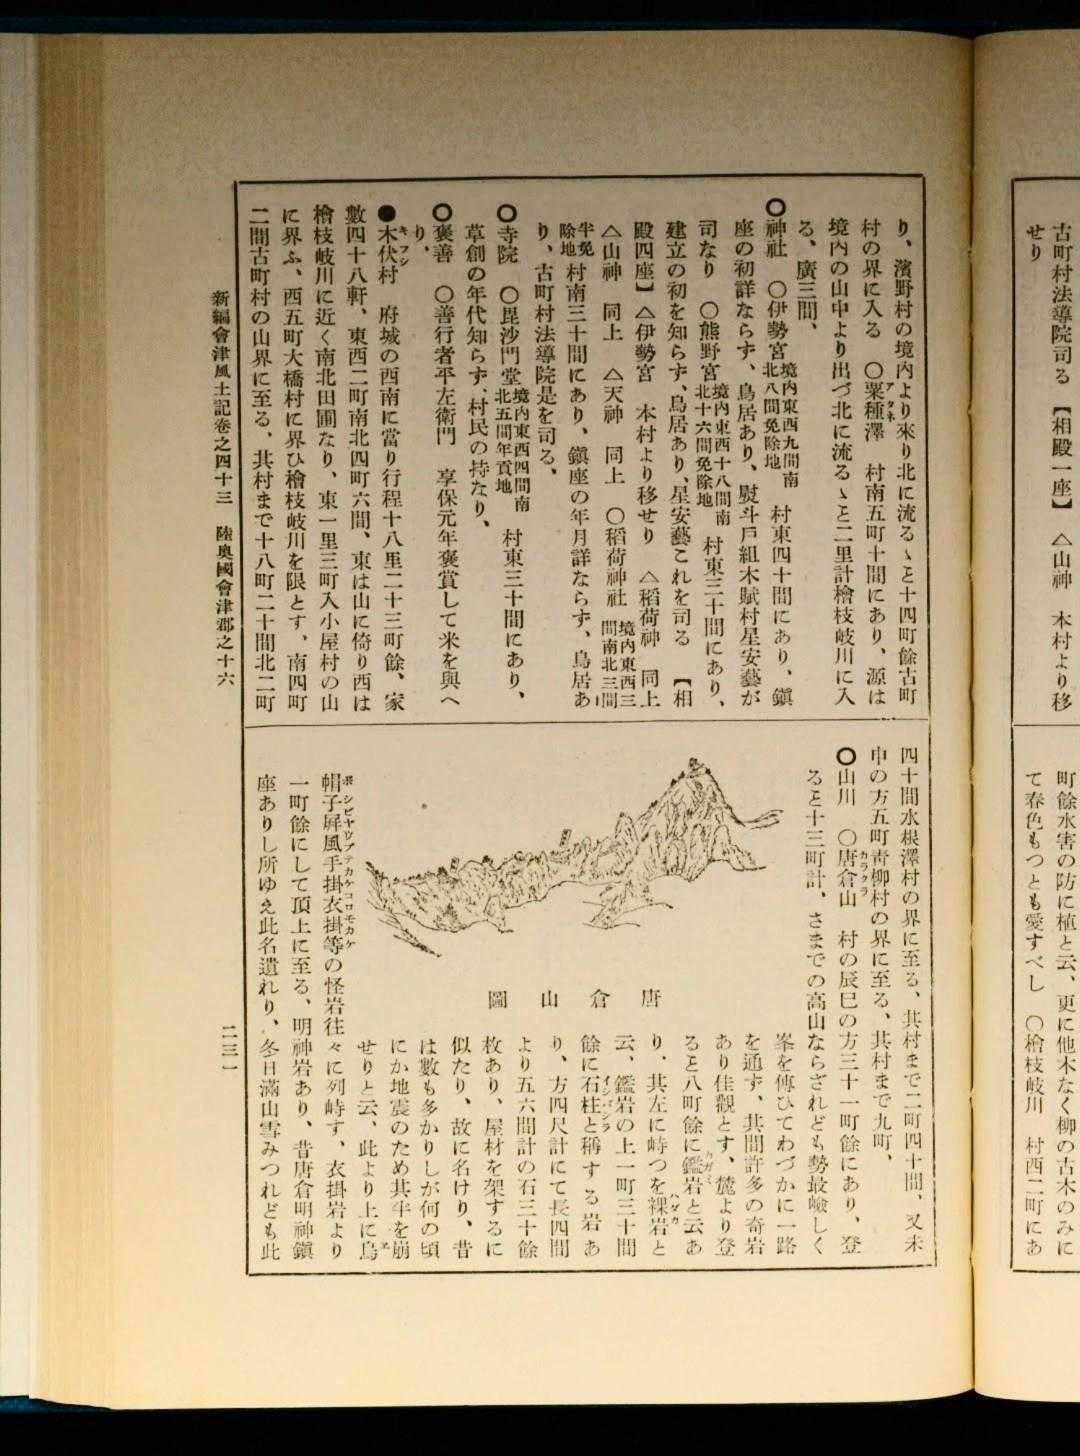 古町村法導院司る 【相殿一座】 △山神 本村より移
せり
町餘水害の防に植と云、更に他木なく柳の古木のみに
て春色もつとも愛すべし 〇檜枝岐川 村西二町にあ
り、濱野村の境内より來り北に流るゝと十四町餘古町
村の界に入る 〇粟種澤 村南五町十間にあり、源は
アハタネ
境內の山中より出づ北に流るゝと二里計檜枝岐川に入
る、廣三間、
〇神社 〇伊勢宮 境內東西九間南北八間免除地 村東四十間にあり、鎭
座の初詳ならず、鳥居あり、熨斗戶組木賦村星安藝が
司なり 〇熊野宮 境內東西十八間南北十六間免除地 村東三十間にあり、
建立の初を知らず、鳥居あり、星安藝これを司る 【相
殿四座】 △伊勢宮 本村より移せり △稻荷神 同上
△山神 同上 △天神 同上 〇稻荷神社 境內東西三間南北三間
半免除地 村南三十間にあり、鎭座の年月詳ならず、鳥居あ
り、古町村法導院是を司る、
〇寺院 〇毘沙門堂 境內東西四間南北五間年貢地 村東三十間にあり、
草創の年代知らず、村民の持なり、
〇褒善 〇善行者平左衛門 享保元年褒賞して米を與へ
り、
●木伏村 府城の西南に當り行程十八里二十三町餘、家
キフシ
數四十八軒、東西二町南北四町六間、東は山に倚り西は
檜枝岐川に近く南北田圃なり、東一里三町入小屋村の山
に界ふ、西五町大橋村に界ひ檜枝岐川を限とす、南四町
二間古町村の山界に至る、其村まで十八町二十間北二町
四十間水根澤村の界に至る、其村まで二町四十間、又未
申の方五町靑柳村の界に至る、其村まで九町、
〇山川 〇唐倉山 村の辰巳の方三十一町餘にあり、登
カラクラ
ると十三町計、さまでの高山ならざれども勢最嶮しく
峯を傳ひてわづかに一路
を通ず、其間許多の奇岩
あり佳觀とす、麓より登
ると八町餘に鑑岩と云あ
カガミ
り、其左に峙つを裸岩と
ハダカ
云、鑑岩の上一町三十間
餘に石柱と稱する岩あ
イシバシラ
り、方四尺計にて長四間
より五六間計の石三十餘
枚あり、屋材を架するに
似たり、故に名けり、昔
は數も多かりしが何の頃
にか地震のため其半を崩
せりと云、此より上に烏
エ
唐倉山圖
帽子屛風手掛衣掛等の怪岩往々に列峙す、衣掛岩より
ボシビヤウブテカケコロモカケ
一町餘にして頂上に至る、明神岩あり、昔唐倉明神鎭
座ありし所ゆえ此名遺れり、冬日滿山雪みつれども此
新編會津風土記卷之四十三 陸奧國會津郡之十六
二三一